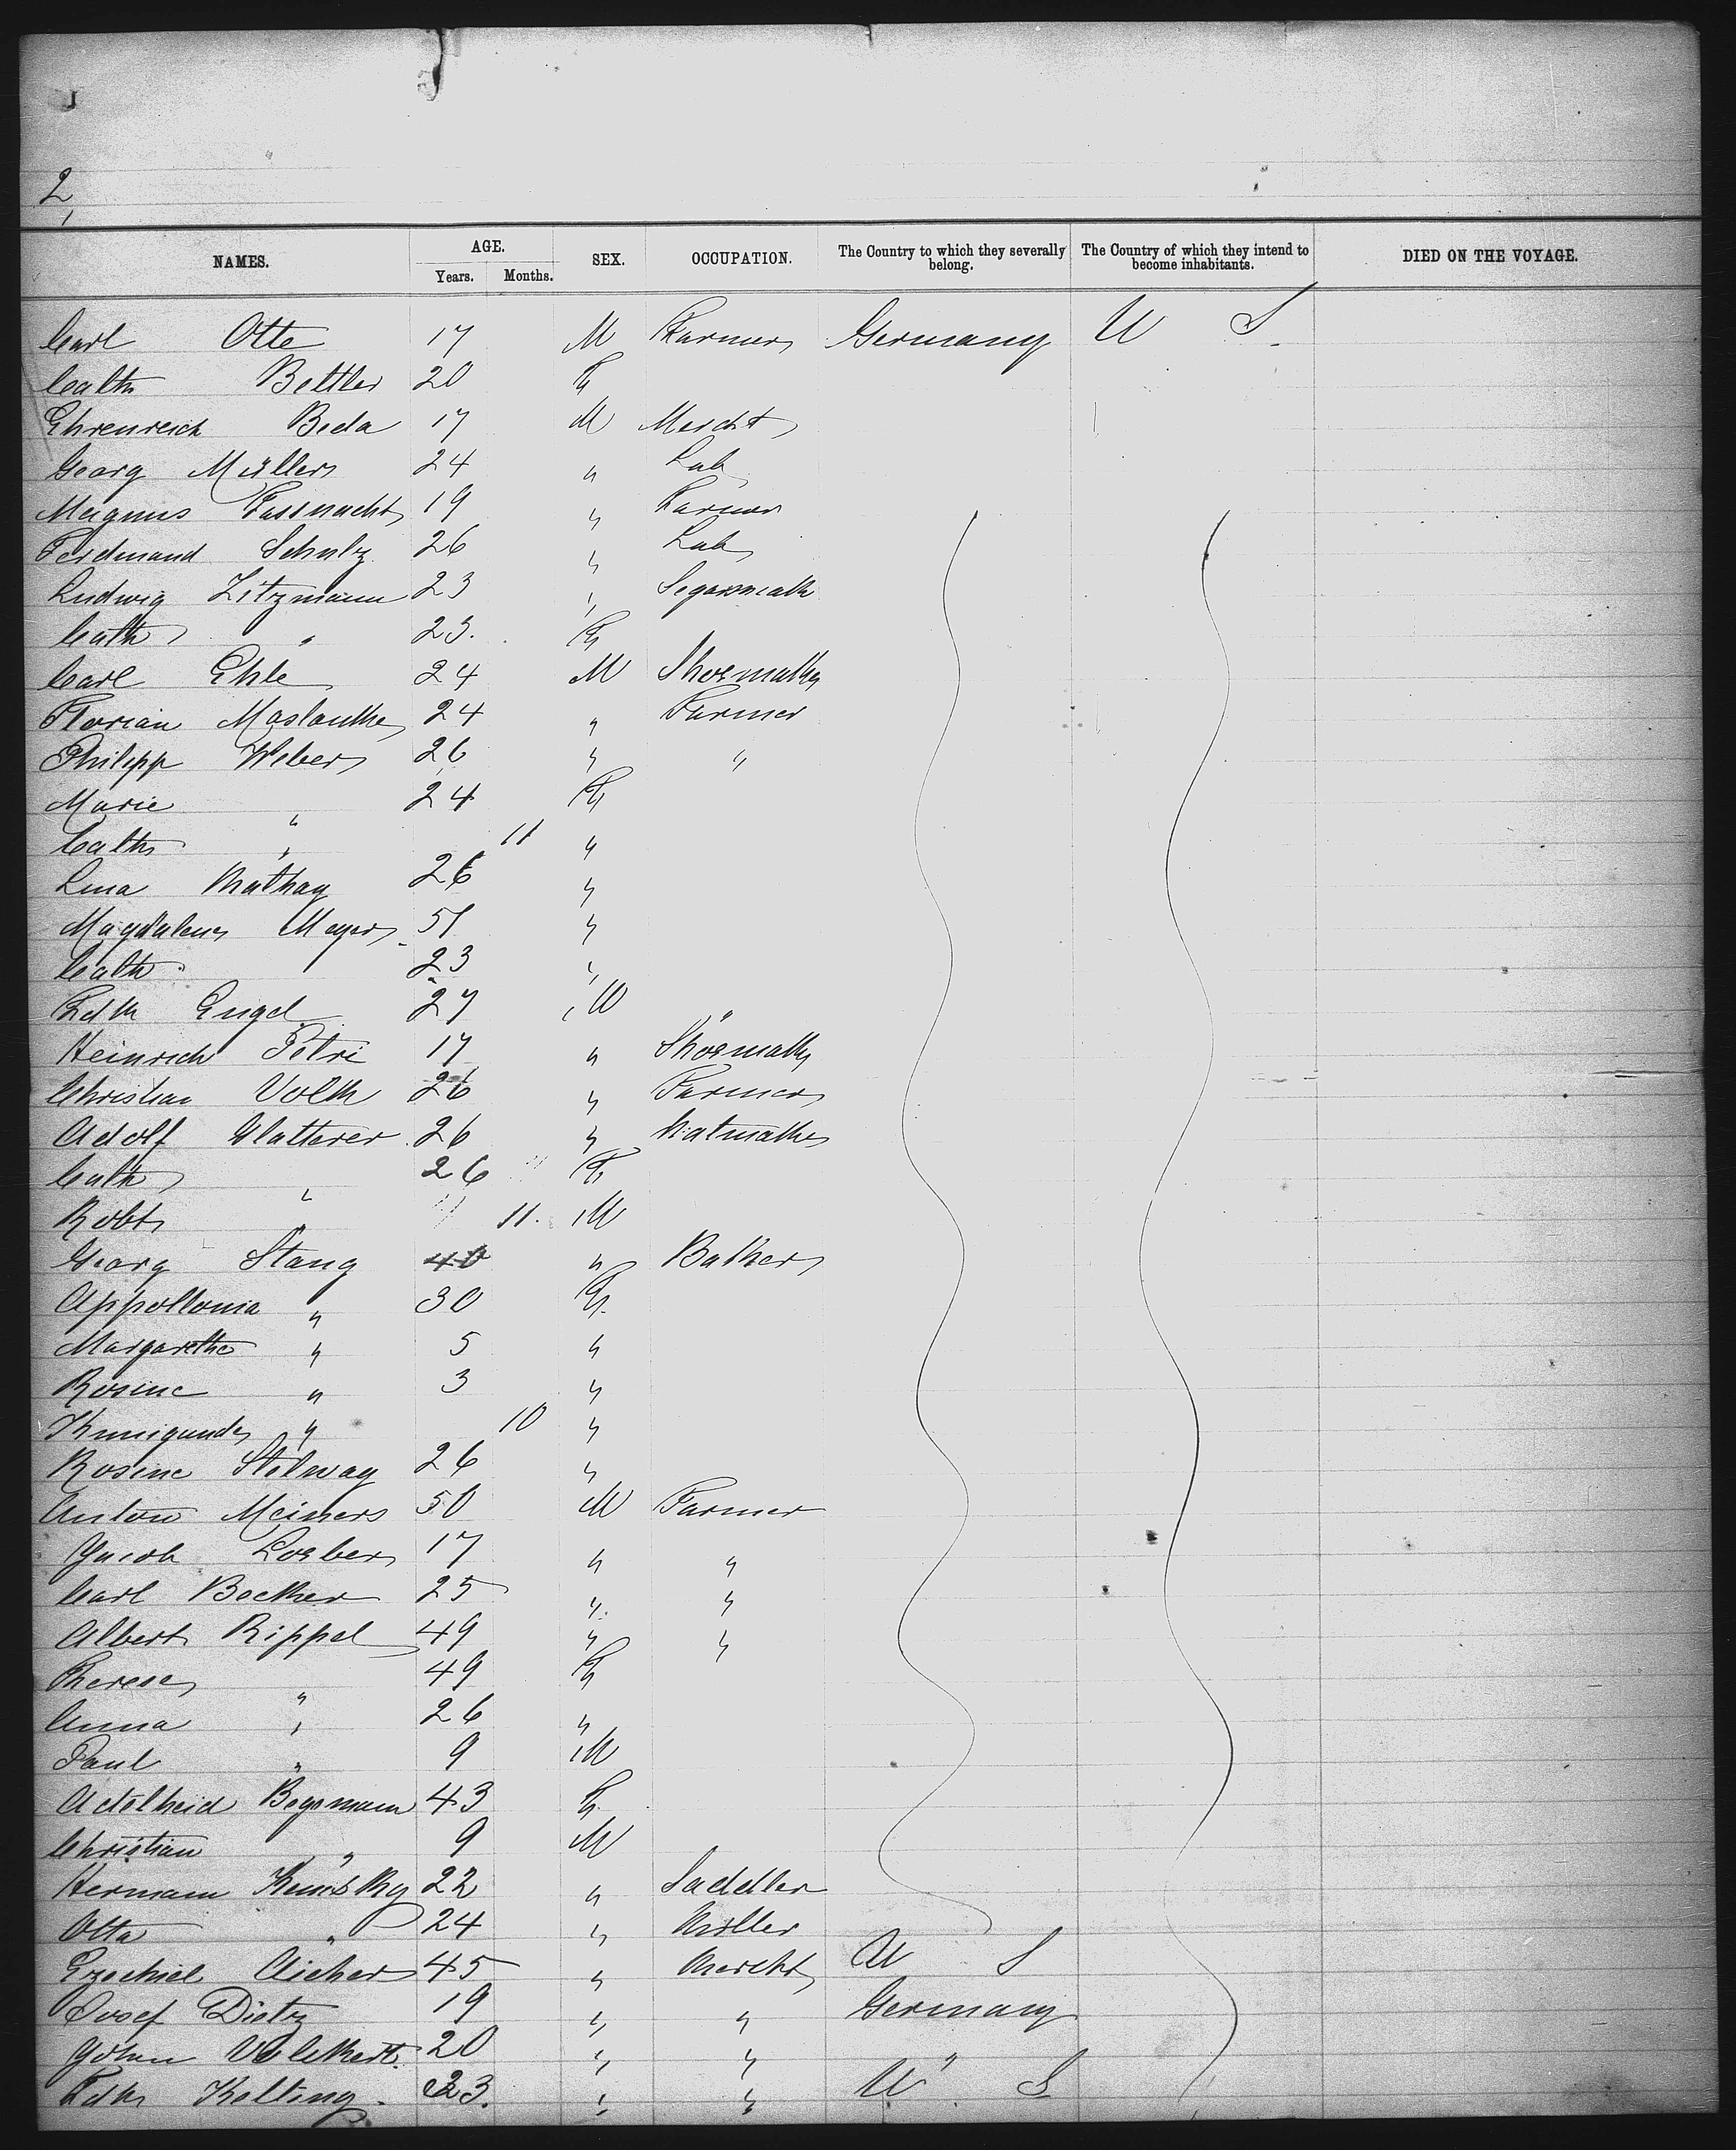 2,
NAMES. AGE. Years. Months. SEX. OCCUPATION. The Country to which they severally belong. The Country of which they intend to become inhabitants. DIED ON THE VOYAGE.
Carl Otte 17 M Farmer Germany U S.
Cath Bettler 20 F
Ehrenreich Beda 17 M Mercht
Georg Müller 24 " Lab
Magnus Fassnacht 19 " Farmer
Ferdinand Schulz 26 " Lab
Ludwig Zitzmann 23 "
Cath " 23. F
Carl Ehle 24 M Shoemaker
Florian Maslanke 24 " Farmer
Philipp Weber 26 " "
Marie " 24 F
Cath " 11 "
Lina Mathay 26 "
Magdalena Meyer 51 "
Cath 23 "
Fdk Engel 27 M "
Heinrich Petri 17 " Shoemaker
Christian Volk 26 " Farmer
Adolf Glatterer 26 " Hatmaker
Cath " 26 " F
Robt " 11. M
Georg Stang 40 " Baker
Appollonia " 30 F.
Margarethe " 5 "
Rosine " 3 "
Kunigunde " 10 "
Rosine Stelway 26 "
Anton Meiners 50 M Farmer
Jacob Loeber 17 " "
Carl Becker 25 " "
Albert Rippel 49 " "
Therese " 49 F
Anna " 26 "
Paul " 9 M
Adelheid Bergmann 43 F.
Christian " 9 M
Hermann 22 " Saddler
Otto " 24 " Miller
Ezechiel Aicher 45 " Mercht U S
Josef Dietz 19 " " Germany
Johann Volkert. 20 " " "
Fdk Kelting. 23. " " U S